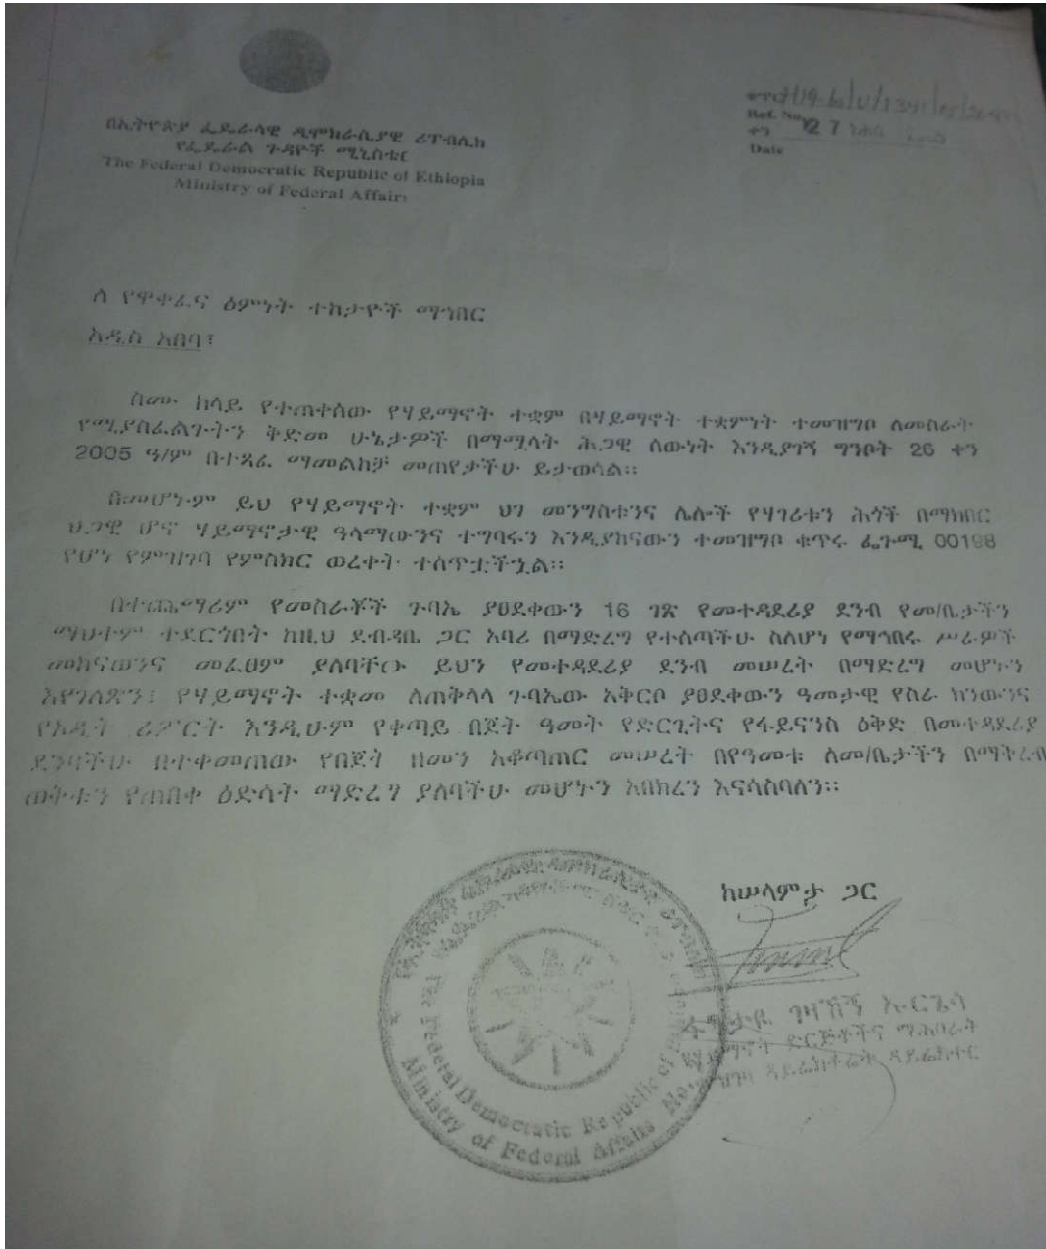 በኢትዮጵያ ፌዴራላዊ ዲሞክራሲያዊ ሪፐብሊክ
የፌዴራል ጉዳዮች ሚኒስቴር
The Federal Democratic Republic of Ethiopia
Ministry of Federal Affairs
ቁጥር
Ref. No
ቀን 27
Date
ለ የዋቀፈና ዕምነት ተከታዮች ማኅበር
አዲስ አበባ፣
ስሙ ከላይ የተጠቀሰው የሃይማኖት ተቋም በሃይማኖት ተቋምነት ተመዝግቦ ለመስራት
የሚያስፈልጉትን ቅድመ ሁኔታዎች በማሟላት ሕጋዊ ሰውነት እንዲያገኝ ግንቦት 26 ቀን
2005 ዓ/ም በተጻፈ ማመልከቻ መጠየታችሁ ይታወሳል፡፡
በመሆኑም ይህ የሃይማኖት ተቋም ህገ መንግስቱንና ሌሎች የሃገሪቱን ሕጎች በማክበር
ህጋዊ ሆኖ ሃይማኖታዊ ዓላማውንና ተግባሩን እንዲያከናውን ተመዝግቦ ቁጥሩ ፌጉሚ 00198
የሆነ የምዝገባ የምስክር ወረቀት ተሰጥቷችኋል፡፡
በተጨማሪም የመስራቾች ጉባኤ ያፀደቀውን 16 ገጽ የመተዳደሪያ ደንብ የመ/ቤታችን
ማህተም ተደርጎበት ከዚህ ደብዳቤ ጋር አባሪ በማድረግ የተሰጣችሁ ስለሆነ የማኅበሩ ሥራዎች
መከናወንና መፈፀም ያለባቸው ይህን የመተዳደሪያ ደንብ መሠረት በማድረግ መሆኑን
እየገለጽን፤ የሃይማኖት ተቋሙ ለጠቅላላ ጉባኤው አቅርቦ ያፀደቀውን ዓመታዊ የስራ ክንውንና
የኦዲት ሪፖርት እንዲሁም የቀጣይ በጀት ዓመት የድርጊትና የፋይናንስ ዕቅድ በመተዳደሪያ
ደንባችሁ በተቀመጠው የበጀት ዘመን አቆጣጠር መሠረት በየዓመቱ ለመ/ቤታችን በማቅረብ
ወቅቱን የጠበቀ ዕድሳት ማድረግ ያለባችሁ መሆኑን አበክረን እናሳስባለን፡፡
ከሠላምታ ጋር
The Federal Democratic Republic of Ethiopia
Ministry of Federal Affairs
የሃይማኖት ድርጅቶችና ማሕበራት
ምዝገባ ዳይሬክቶሬት ዳይሬክተር